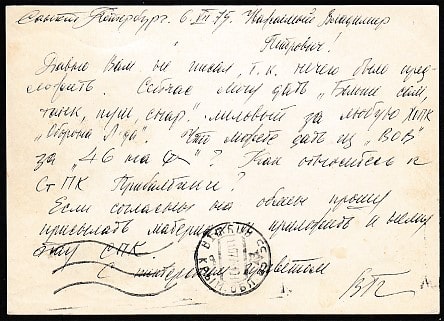 Санкт Петербург. 6.VII 79. Уважаемый Владимир
Петрович!
Давно Вам не писал, т.к. нечего было пред-
ложить. Сейчас могу дать
танк, пуш, снар." за любую ХМК
"Оборона Л-да". Что можете дать из "ВОВ"
за "46 на Ф"? Как относитесь к
СтПК Прибалтики?
Если согласны на обмены прошу
присылать материал и приложить к нему
СПК.
С приветом